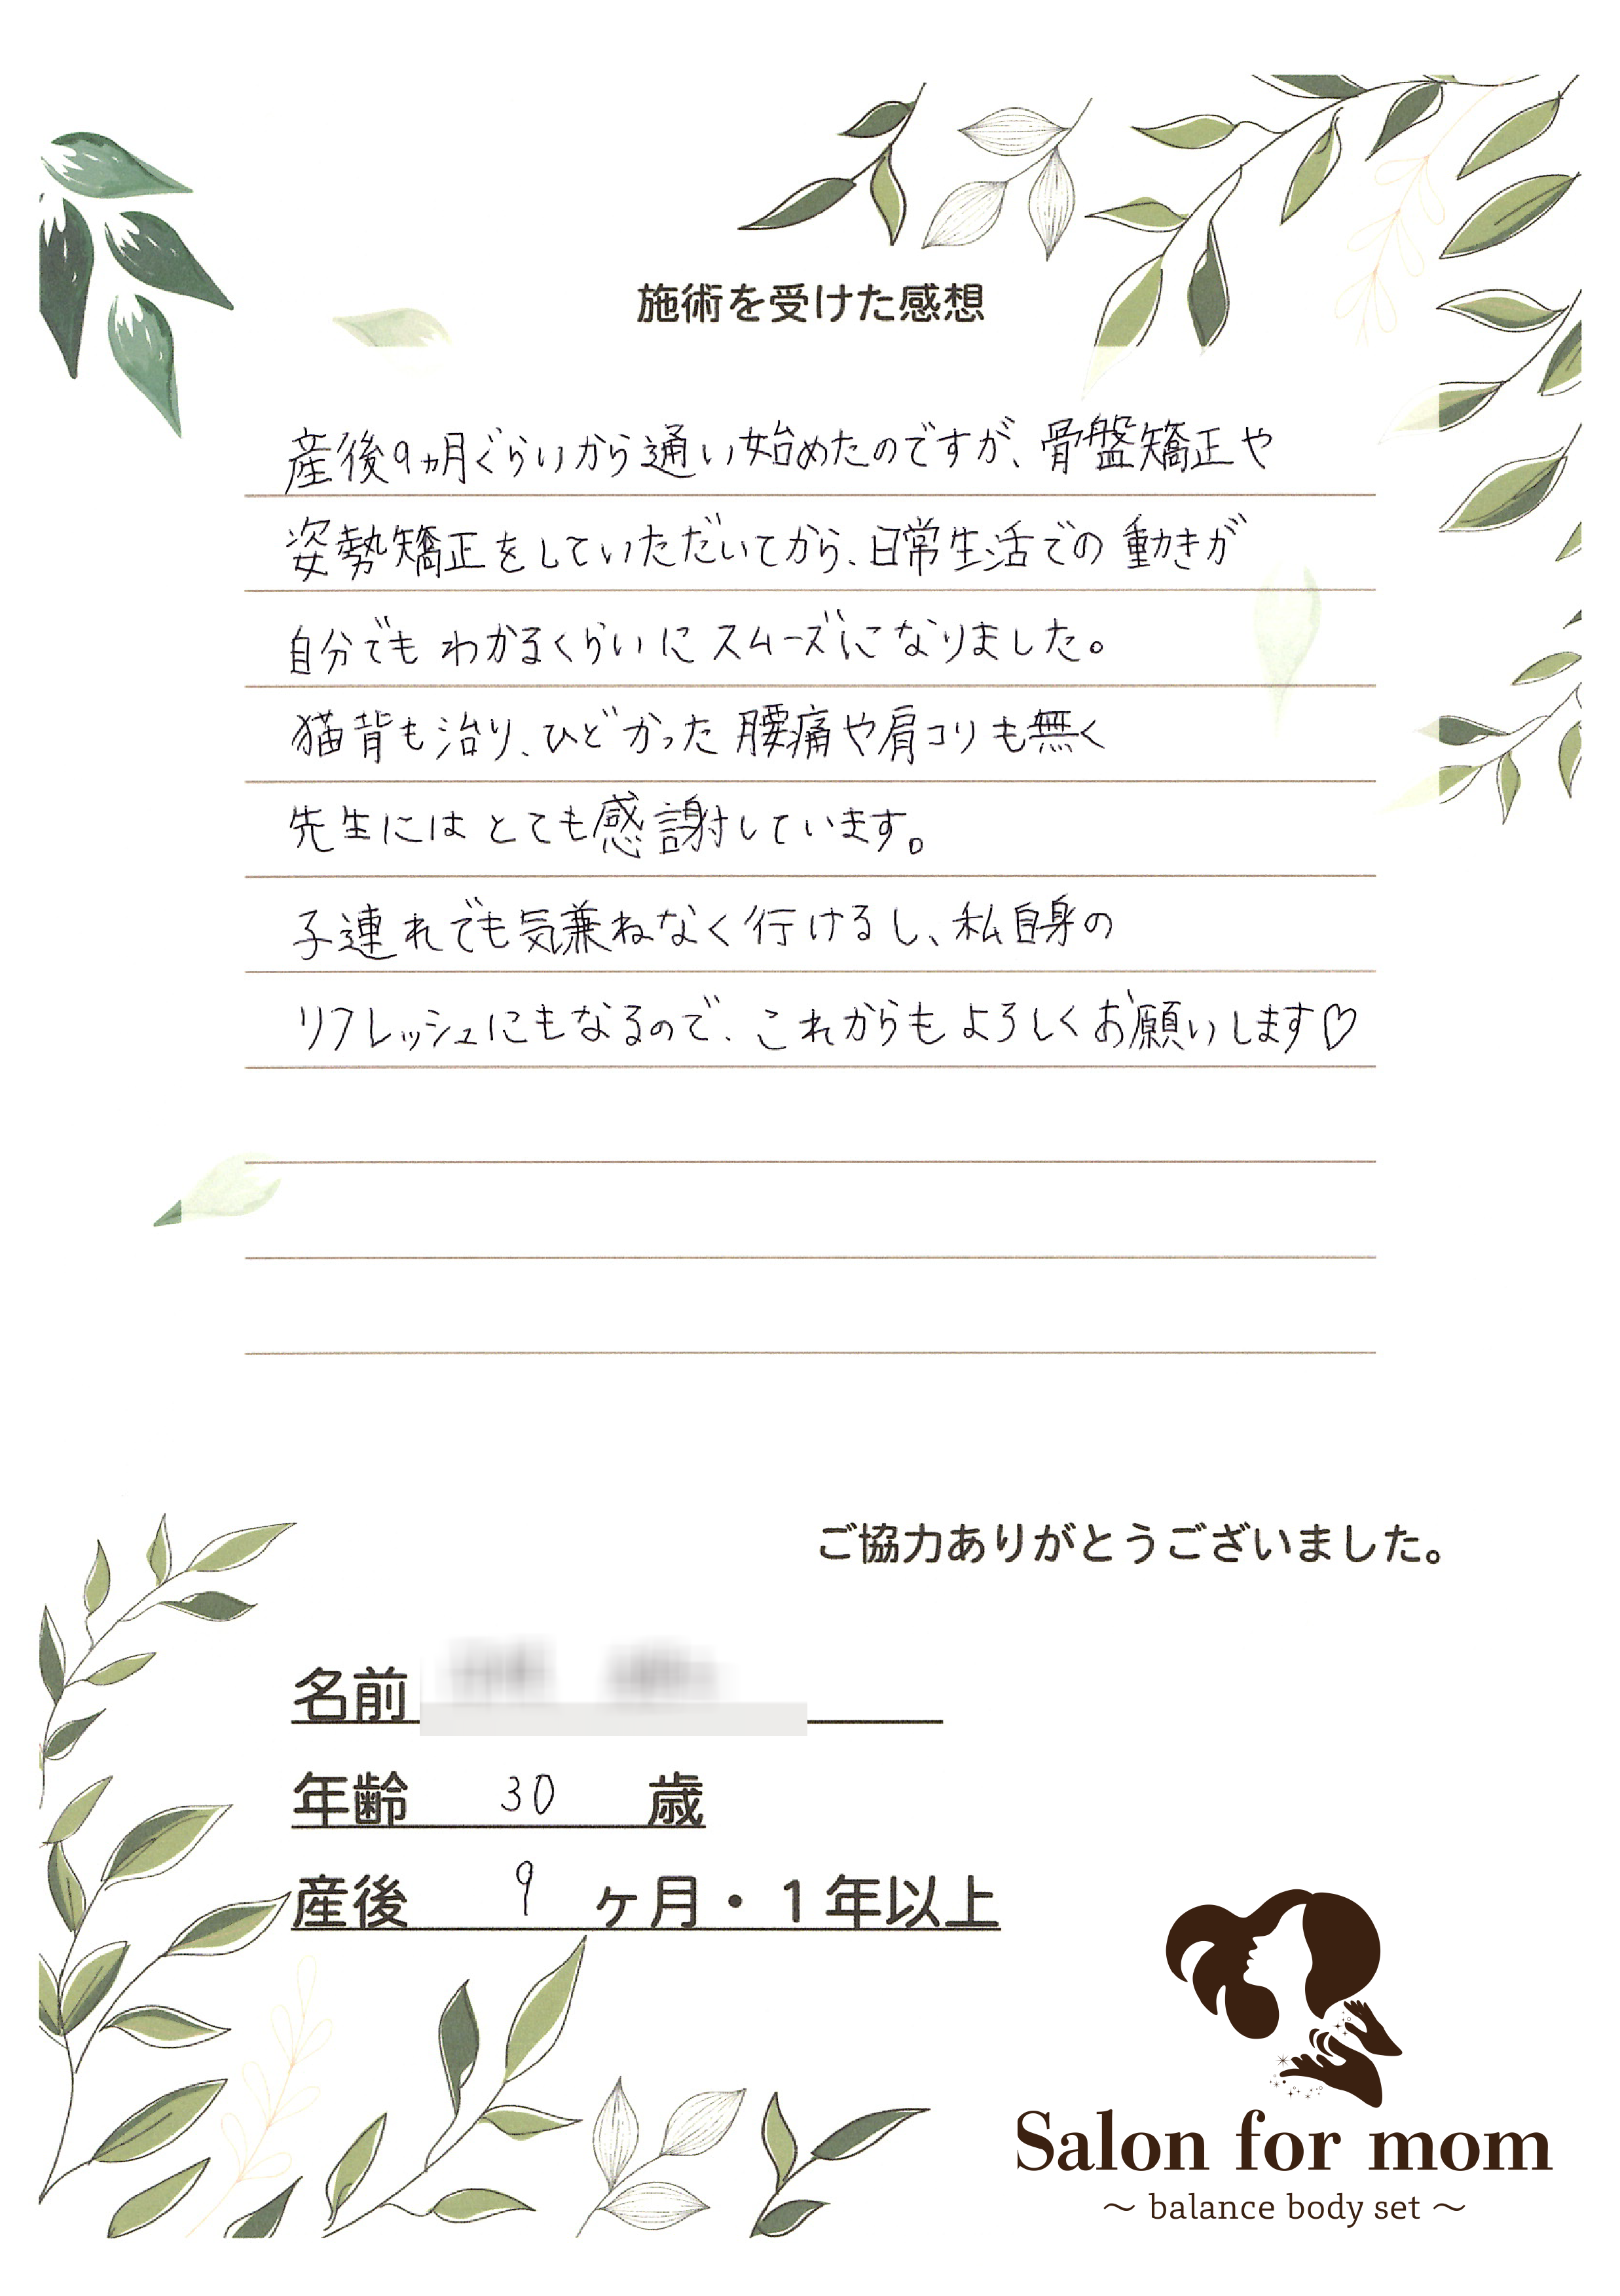 施術を受けた感想
産後9ヵ月ぐらいから通い始めたのですが、骨盤矯正や
姿勢矯正をしていただいてから、日常生活での動きが
自分でもわかるくらいにスムーズになりました。
猫背も治り、ひどかった腰痛や肩コリも無く
先生にはとても感謝しています。
子連れでも気兼ねなく行けるし、私自身の
リフレッシュにもなるので、これからもよろしくお願いします♡
ご協力ありがとうございました。
名前
年齢 30 歳
産後 9 ヶ月・1年以上
Salon for mom
～ balance body set ～